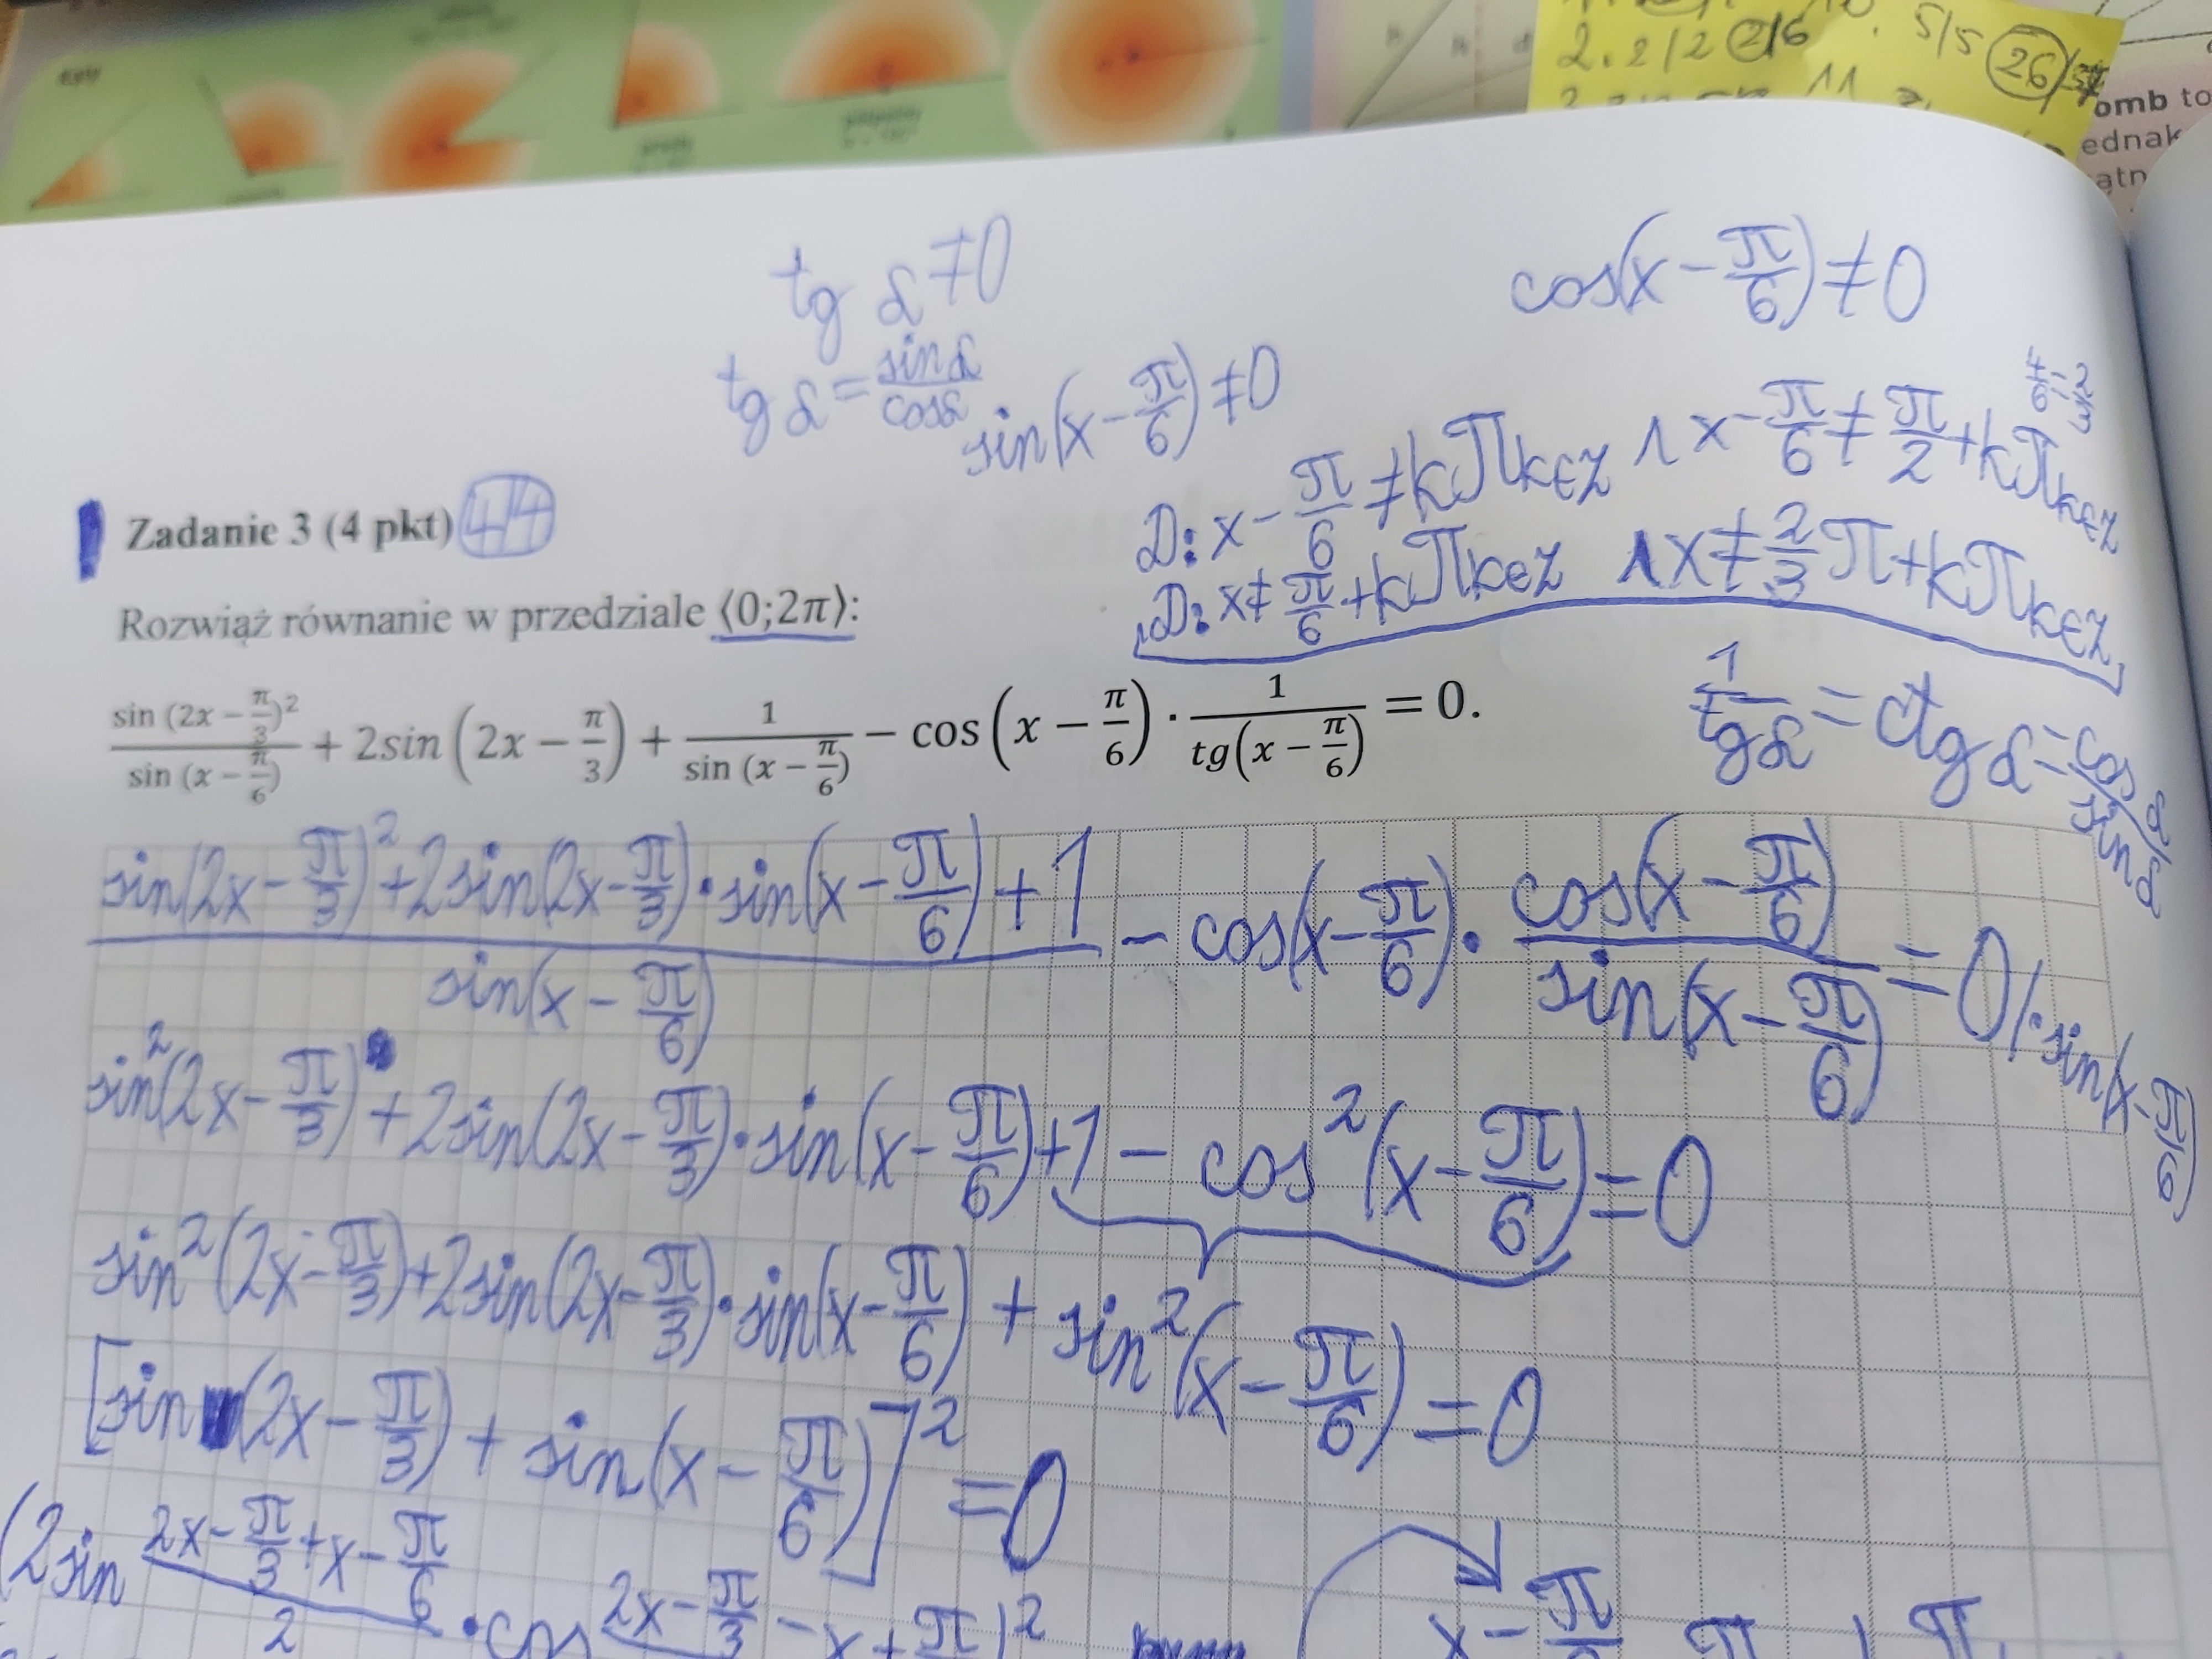 2. 2/2 2/6
5/5 26
11
omb to
ednak
ątn
tg α ≠ 0
cos(x - π/6) ≠ 0
tg α = sin α / cos α
sin(x - π/6) ≠ 0
4/6 = 2/3
D: x - π/6 ≠ kπ k∈Z ∧ x - π/6 ≠ π/2 + kπ k∈Z
D: x ≠ π/6 + kπ k∈Z ∧ x ≠ 2/3 π + kπ k∈Z
Zadanie 3 (4 pkt) 4/4
Rozwiąż równanie w przedziale ⟨0; 2π⟩:
sin (2x - π/3)² / sin (x - π/6) + 2sin (2x - π/3) + 1 / sin (x - π/6) - cos (x - π/6) · 1 / tg(x - π/6) = 0.
1 / tg α = ctg α = cos α / sin α
(sin(2x - π/3)² + 2sin(2x - π/3) · sin(x - π/6) + 1) / sin(x - π/6) - cos(x - π/6) · cos(x - π/6) / sin(x - π/6) = 0 / · sin(x - π/6)
sin²(2x - π/3) + 2sin(2x - π/3) · sin(x - π/6) + 1 - cos²(x - π/6) = 0
sin²(2x - π/3) + 2sin(2x - π/3) · sin(x - π/6) + sin²(x - π/6) = 0
[sin(2x - π/3) + sin(x - π/6)]² = 0
(2sin (2x - π/3 + x - π/6) / 2 · cos (2x - π/3 - x + π/6 )²
x - π